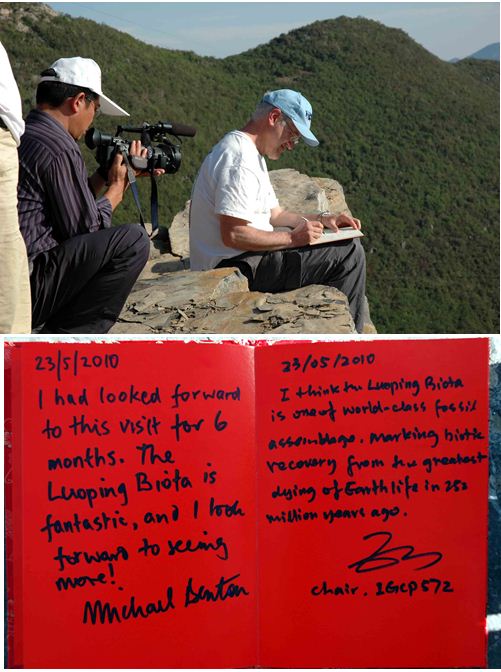 23/5/2010
I had looked forward
to this visit for 6
months. The
Luoping Biota is
fantastic, and I look
forward to seeing
more!
Michael Benton
23/05/2010
I think the Luoping Biota
is one of world-class fossil
assemblage, marking biotic
recovery from the greatest
dying of Earth life in 252
million years ago.
chair, IGCP572